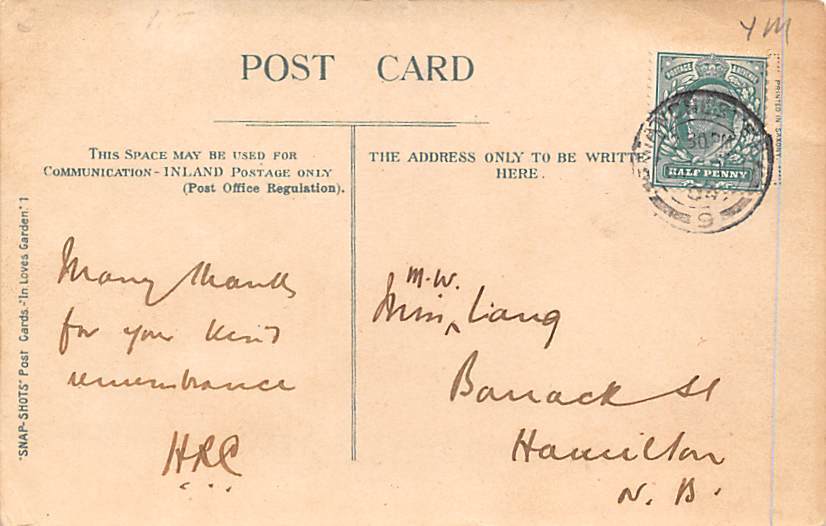 YM
POST CARD
POSTAGE REVENUE
HALF PENNY
30PM
04
S
PRINTED IN SAXONY.
THIS SPACE MAY BE USED FOR
COMMUNICATION - INLAND POSTAGE ONLY
(Post Office Regulation).
THE ADDRESS ONLY TO BE WRITTE
HERE.
"SNAP-SHOTS" Post Cards.-"In Loves Garden." 1
Many thanks
for your kind
remembrance
HRC
M.W.
Miss, Liang
Barrack St
Hamilton
N. B.